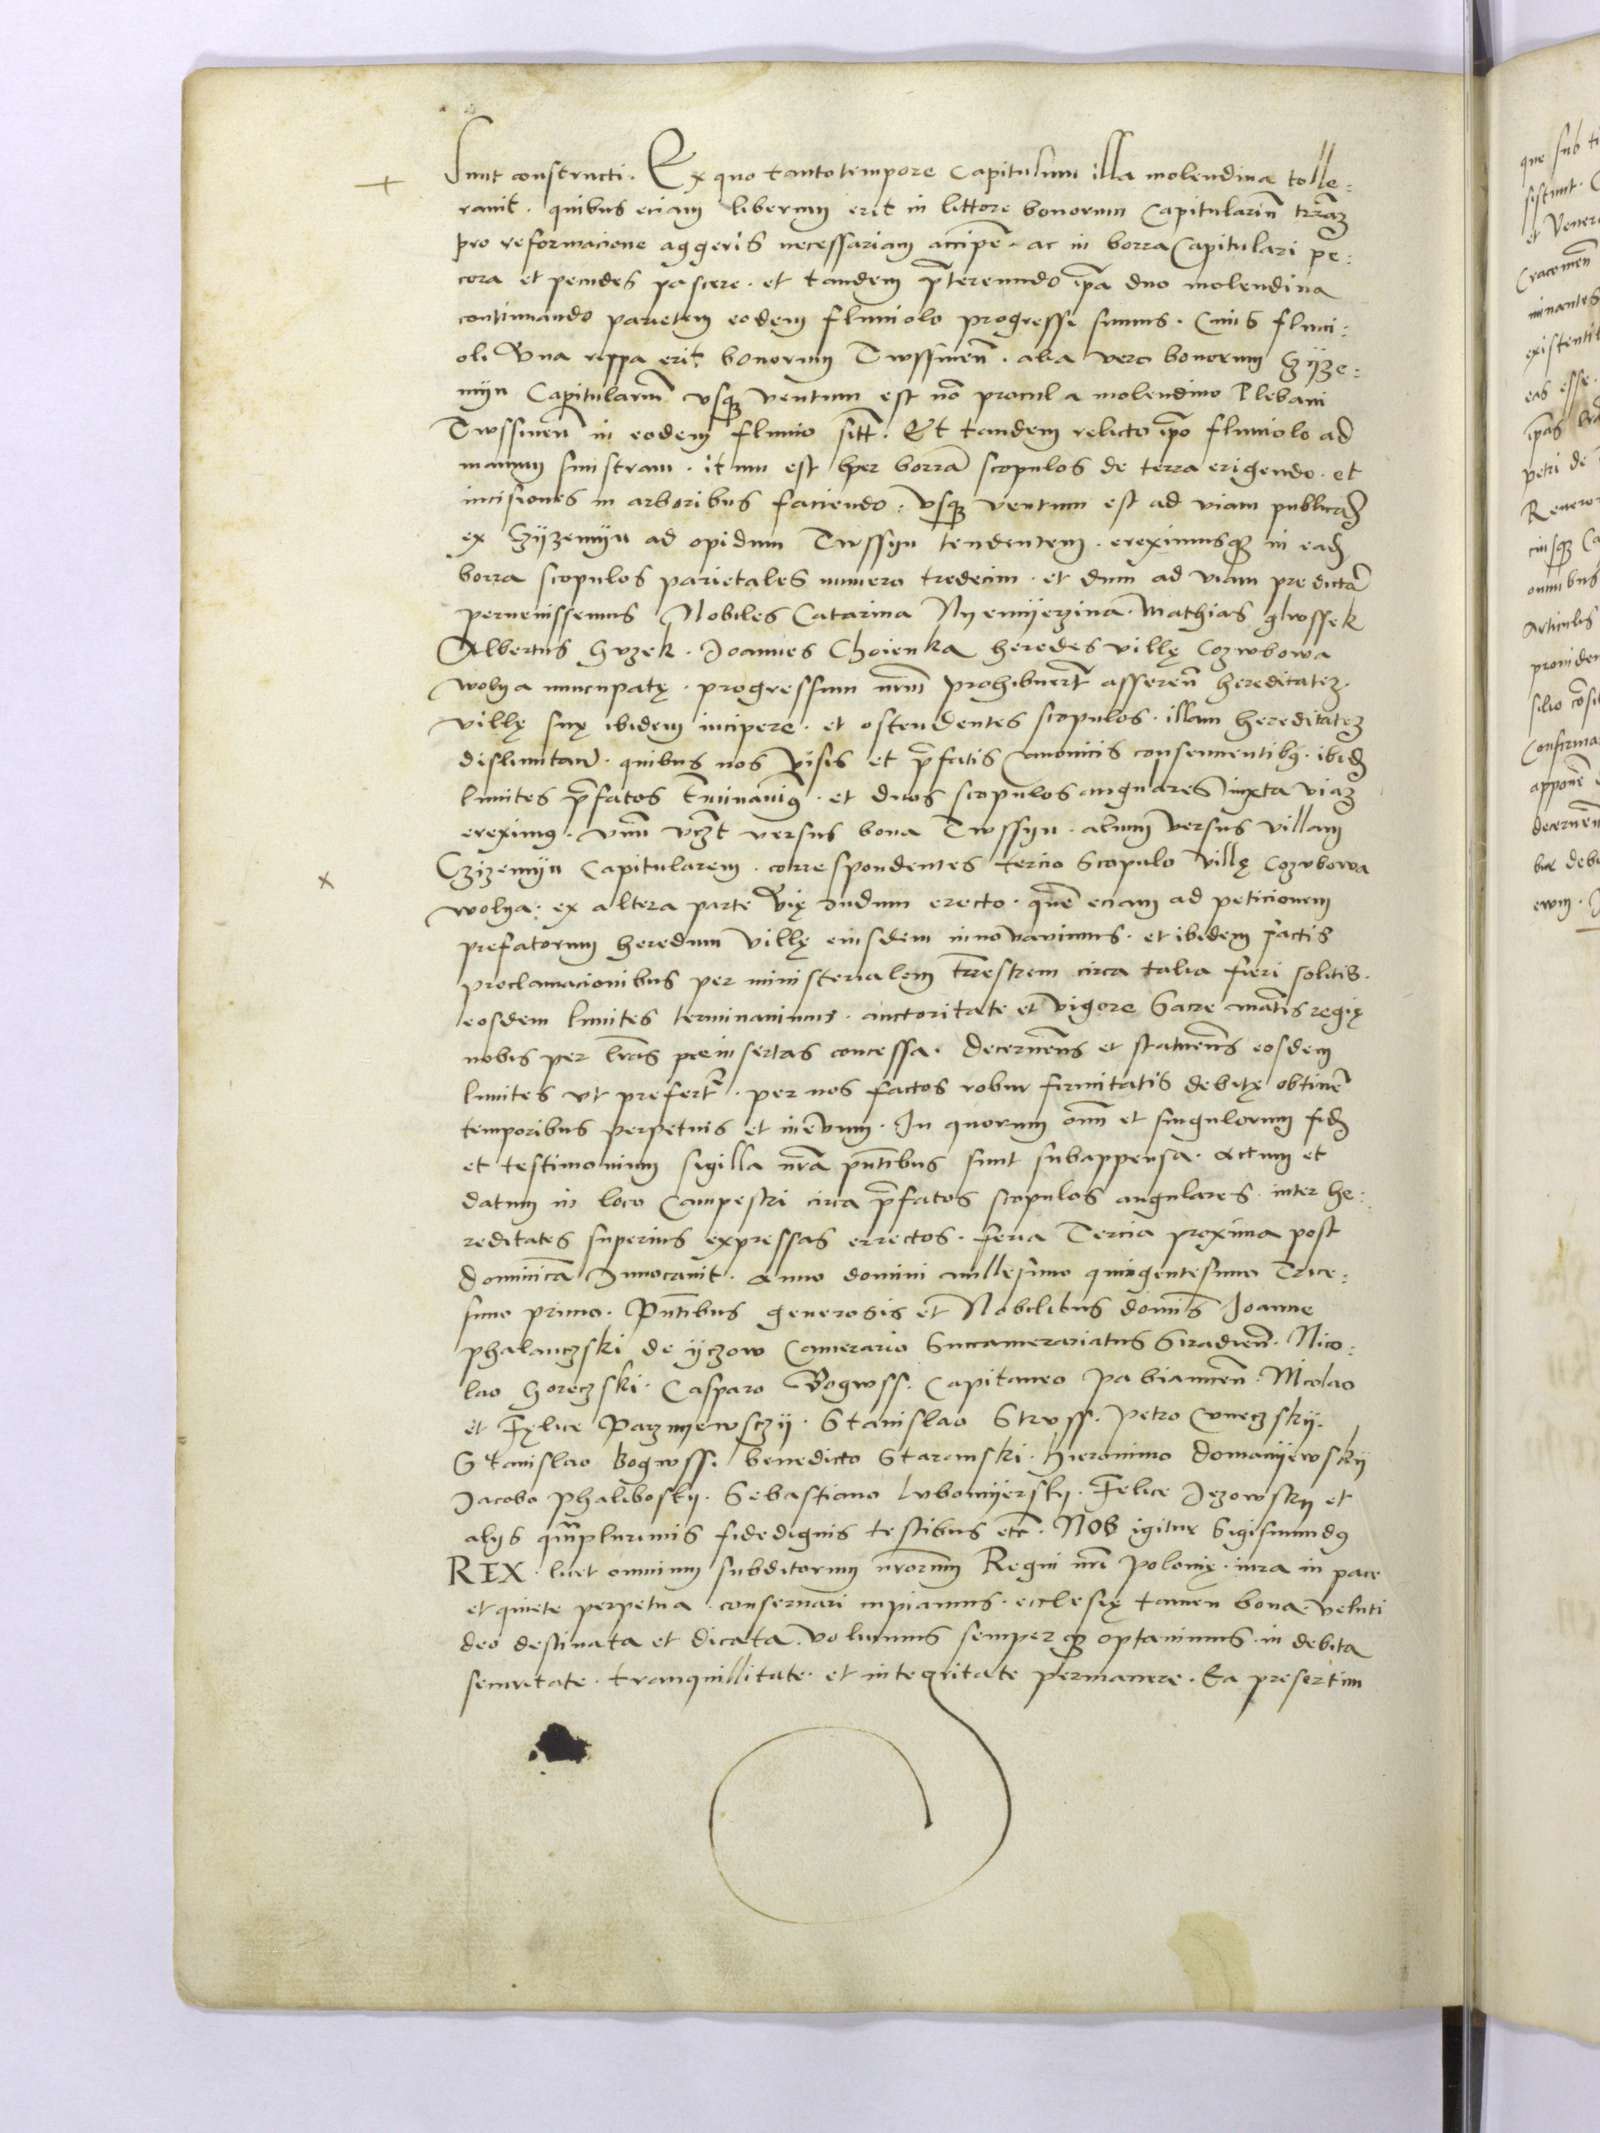 sunt constructi. Ex quo tanto tempore Capitulum illa molendina tolle:
ravit. quibus eciam liberum erit in littore bonorum Capitulariũ trrãȝ
pro reformacione aggeris necessariam accipẽ. ac in borra Capitulari pe:
cora et pecudes pascere. et tandem p̃tereundo ip̃a duo molendina
continuando parietem eodem fluviolo progressi sumus. Cuius fluvi:
oli Una rippa erit bonorum Twssinen̄. alia vero bonorum Gÿze:
mÿn Capitulariũ vsqȝ ventum est nõ procul a molendino Plebani
Twssinen̄ in eodem fluvio sitt̃. Et tandem relicto ip̃o fluviolo ad
manum sinistram. itum est per borrã scopulos de terra erigendo. et
incisiones in arboribus faciendo. Usqȝ ventum est ad viam publicaȝ
ex Gÿzemÿn ad opidum Twssyn tendentem. ereximusqȝ in eadȝ
borra scopulos parietales numero tredecim. et dum ad viam predictã
pervenissemus Nobiles Catarina Nyemÿerzina. Mathias glwssek
Albertus Guzek. Joannes Choienka heredes villę Cozwbowa
wolya nuncupatę. progressum nr̃m prohibuerũt asseren̄ hereditateȝ
villę suę ibidem incipere. et ostendentes scopulos. illam hereditateȝ
dislimitan̄. quibus nos visis et p̃fatis Canonicis consencientibꝰ. ibidȝ
limites p̃fatos t̃minavimꝰ. et duos scopulos angulares iuxta viaȝ
ereximꝰ. vnũ vczt versus bona Twssyn. alium versus villam
Gzizemÿn Capitularem. correspondentes tercio Scopulo villę Cozwbowa
wolya. ex altera parte Vię dudum erecto. quẽ eciam ad peticionem
prefatorum heredum villę eiusdem innovavimus. et ibidem factis
proclamacionibus per ministerialem trr̃estrem circa talia fieri solitis.
eosdem limites terminavimus. auctoritate et Vigore Sacre mãtis regię
nobis per lr̃as preinsertas concessa. Decernen̄s et statuen̄s eosdem
limites ut prefert᷑. per nos factos robur firmitatis debitę obtinẽ
temporibus perpetuis et in ẽvum. In quorum om̃ĩ et singulorum fidȝ
et testimonium sigilla nr̃a p̃ntibus sunt subappensa. Actum et
datum in loco Campestri circa p̃fatos scopulos angulares. inter he:
reditates superius expressas errectos. feria Tercia proxima post
Dominicã Invocavit. Anno domini millesimo quingentesimo Trice:
simo primo. P̃ntibus generosis et Nobilibus dominis Joanne
phalanczski de ÿczow Camerario Succamerariatus Siradien̄. Nico:
lao Goreczski. Casparo Bogwss. Capitaneo Pabiancien̄. Nicolao
et Fęlice Pacznyewsczÿ. Stanislao Strvss. Petro Cvneczskÿ.
Stanislao Bogwss. benedicto Staremski. Hieronimo Domanÿewskÿ
Jacobo Phaliboskÿ. Sebastiano Lvbomÿerskÿ. Felice Jezowskÿ et
alÿs qm̃plurimis fidedignis testibus etc̃. NOS igitur Sigismundꝰ
REX. licet omnium subditorum nr̃orum Regni nr̃i Polonię. iura in pace
et quiete perpetua. conservari cupiamus. ecclesię tamen bona veluti
deo destinata et dicata. volumus semperqȝ optavimus. in debita
securitate. tranquillitate. et integritate permanere. Ea presertim